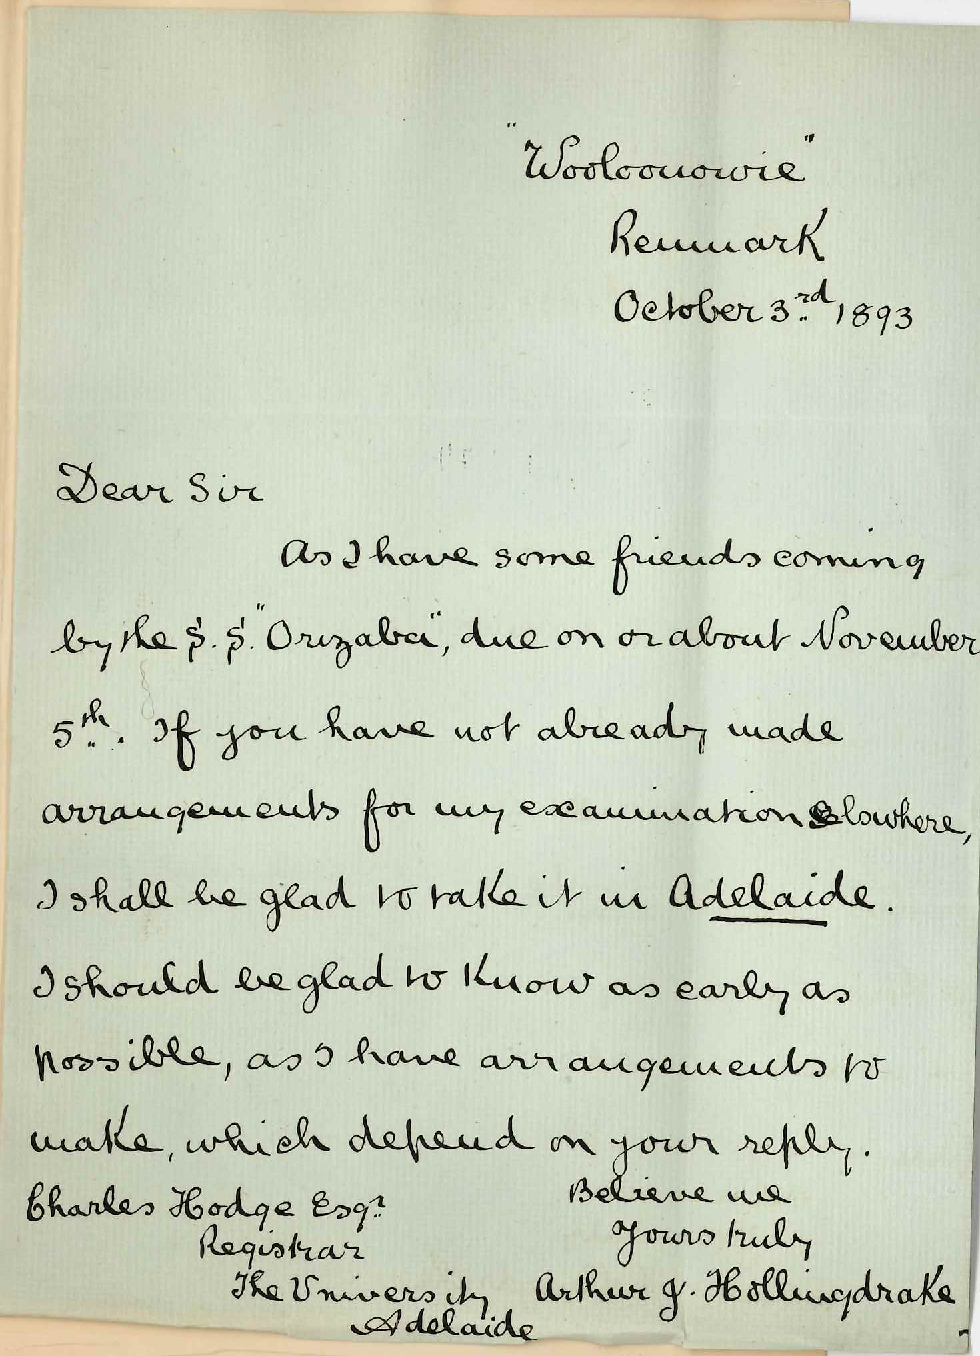 "Wooloonowie"
Renmark
October 3rd, 1893
Dear Sir
As I have some friends coming
by the S. S. "Orizaba", due on or about November
5th. If you have not already made
arrangements for my examination elswhere,
I shall be glad to take it in Adelaide.
I should be glad to know as early as
possible, as I have arrangements to
make, which depend on your reply.
Believe me
Yours truly
Arthur J. Hollingdrake
Charles Hodge Esqr
Registrar
The University
Adelaide